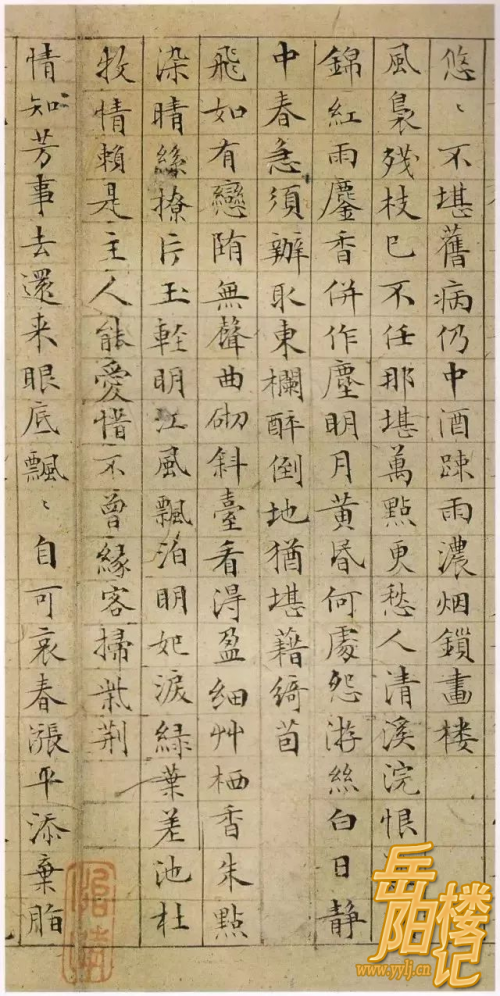 悠〻不堪舊病仍中酒踈雨濃烟鎖畫楼
風裊殘枝已不任那堪萬點更愁人清溪浣恨
錦紅雨鏖香併作塵明月黄昏何處怨游絲白日静
中春急須辦取東欄醉倒地猶堪藉綺茵
飛如有戀墮無聲曲砌斜臺看淂盈細艸栖香朱點
染晴絲撩片玉輕明江風飄泊明妃淚緑葉差池杜
牧情賴是主人能愛惜不曾緣客掃柴荆
情知芳事去還来眼底飄〻自可哀春漲平添棄脂
岳阳楼记
www.yylj.cn